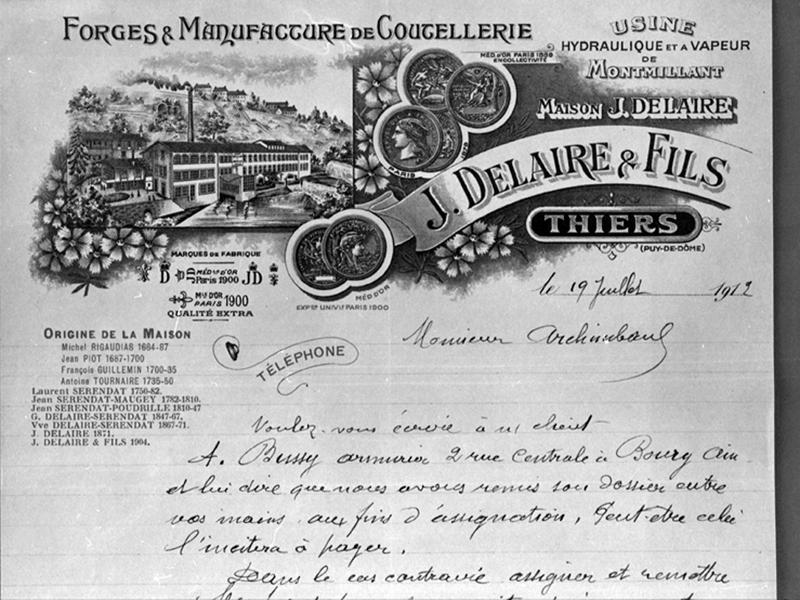 FORGES & MANUFACTURE DE COUTELLERIE
USINE
HYDRAULIQUE ET A VAPEUR
DE
MONTMILLANT
MÉD. D'OR PARIS 1889
EN COLLECTIVITÉ
MAISON J. DELAIRE
PARIS
J. DELAIRE & FILS
THIERS
(PUY-DE-DÔME)
MARQUES DE FABRIQUE
D MÉD. D'OR Paris 1900 JD
MÉD. D'OR PARIS 1900
QUALITÉ EXTRA
MÉD. D'OR
EXP.on UNIV.lle PARIS 1900
le 19 Juillet 1912
ORIGINE DE LA MAISON
Michel RIGAUDIAS 1664-87
Jean PIOT 1687-1700
François GUILLEMIN 1700-35
Antoine TOURNAIRE 1735-50
Laurent SERENDAT 1750-82.
Jean SERENDAT-MAUGEY 1782-1810.
Jean SERENDAT-POUDRILLE 1810-47
G. DELAIRE-SERENDAT 1847-67.
Vve DELAIRE-SERENDAT 1867-71.
J. DELAIRE 1871.
J. DELAIRE & FILS 1904.
TÉLÉPHONE
Monsieur Archimbaud
Voulez-vous écrire à un client
A. Bussy armurier 2 rue Centrale à Bourg Ain
et lui dire que nous avons remis son dossier entre
vos mains aux fins d'assignation, Peut-être cela
l'incitera à payer.
Dans le cas contraire assigner et remettre